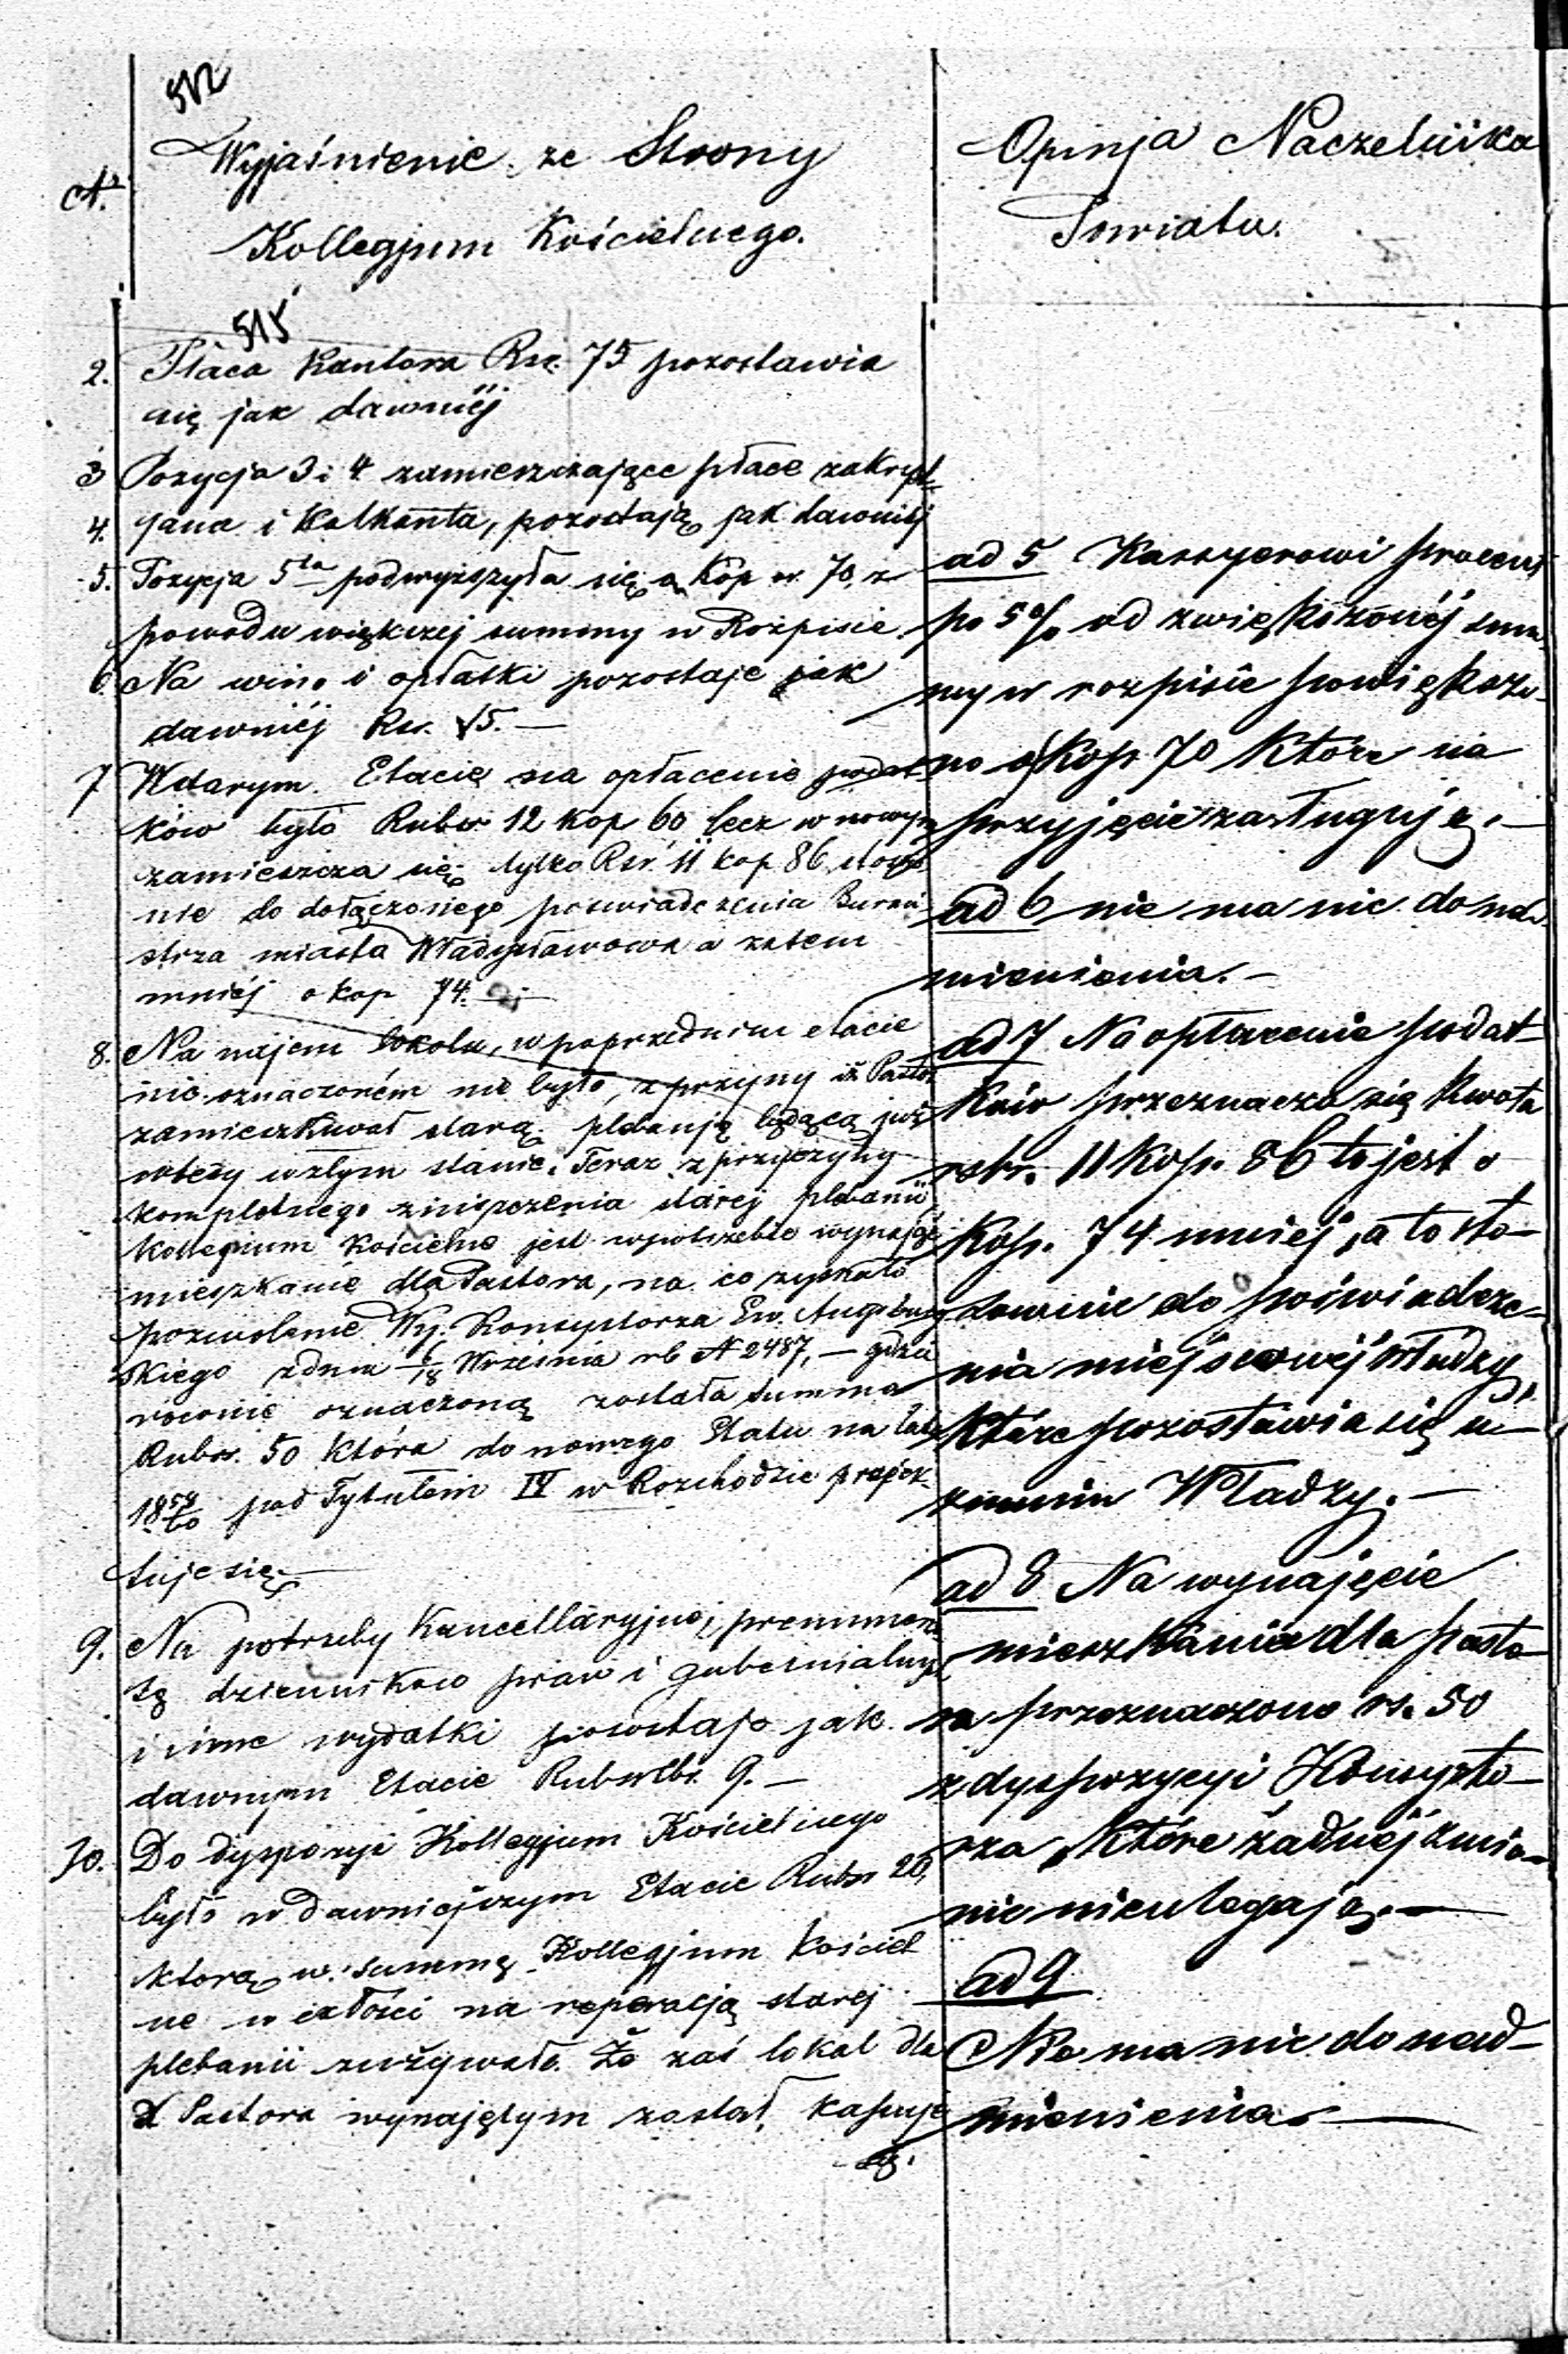 512
№
Wyjaśnienie ze Strony
Kollegjum Kościelnego.
515
2. Płaca Kantora Rsr. 75 pozostawia
się jak dawniéj
3 Pozycja 3 i 4 zamieszczające płace zakryst-
4. jana i Kalkanta, pozostają jak dawniéj
5. Pozycja 5ta podwyższyła się o Kop sr. 70, z
powodu większej summy w Rozpisie
6. Na wino i opłatki pozostaje jak
dawniéj Rsr. 15. —
7 W starym Etacie na opłacenie podat-
ków było Rubsr 12 kop 60 lecz w nowym
zamieszcza się tylko Rsr. 11 kop 86, stosow
nie do dołączonego poswiadczenia Burmi-
strza miasta Władysławowa a zatem
mniéj o kop 74. —
8. Na najem lokalu, w poprzednim etacie
nic oznaczoném nie było, z przyczyny iż Pastor
zamieszkiwał starą plebanję będącą już
wtedy w złym stanie. Teraz z przyczyny
kompletnego zniszczenia starej plebanii
Kollegium Kościelne jest w potrzebie wynająć
mieszkanie dla Pastora, na co zyskało
pozwolenie Wy. Konsystorza Ew. Augsburg
skiego z dnia 6/18 Września rb № 2487, — gdzie
rocznie oznaczoną została summa
Rubsr. 50 która do nowego Etatu na lata
1858/60 pod Tytułem IV w Rozchodzie projek-
tuje się. —
9. Na potrzeby Kancellaryjne, prenumera
tę dzienników praw i gubernialnych
i inne wydatki pozostaje jak
dawnym Etacie Rubsrebr. 9. —
10. Do dyspozycji Kollegjum Kościelnego
było w dawniejszym Etacie Rubsr 26,
którą w. summę Kollegjum Kościel
ne w całości na reperacją starej
plebanii zużywało. Że zaś lokal dla
Pastora wynajętym został, kasuje
się.
Opinja Naczelnika
Powiatu.
ad 5 Kassyerowi procent
po 5% od zwiększonéj sum
my w rozpisie powiększo-
no o Kop 70 które na
przyjęcie zasługuję. —
ad 6 nie ma nic do nad-
mienienia. —
ad 7 Na opłacenie podat-
ków przeznacza się kwota
rsbr. 11 Kop. 86 to jest o
Kop. 74 mniej, a to sto-
sownie do poświadcze-
nia miejscowej władzy,
które pozostawia się u-
znaniu Władzy. —
ad 8 Na wynajęcie
mieszkania dla pasto-
ra przeznaczono rs. 50
z dyspozycyi Konsysto-
rza, które żadnéj zmia-
nie nieulegają. —
ad 9
Nie ma nic do nad-
mienienia. —